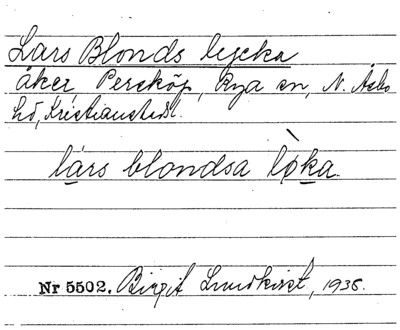 Lars Blonds lycka
åker Persköp, Rya sn, N. Åsbo
hd, Kristianstads l.
lárs blondsa lø̀ka.
Nr 5502. Birgit Lundkvist, 1936.